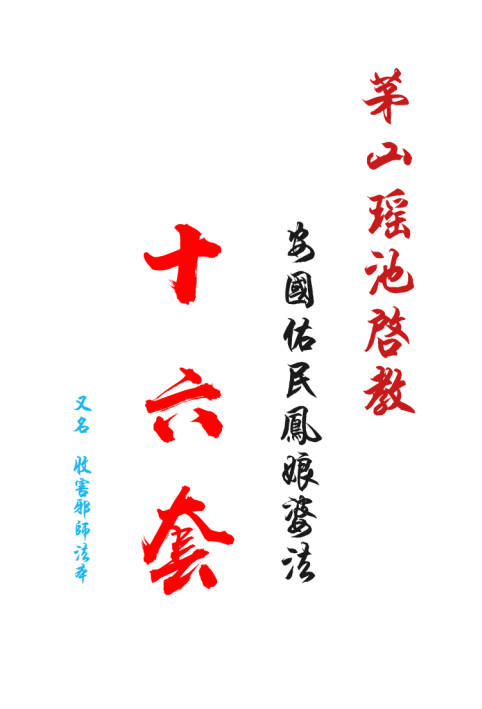 茅山瑶池啓教
安國佑民鳳娘婆法
十六套
又名 收害邪師法本